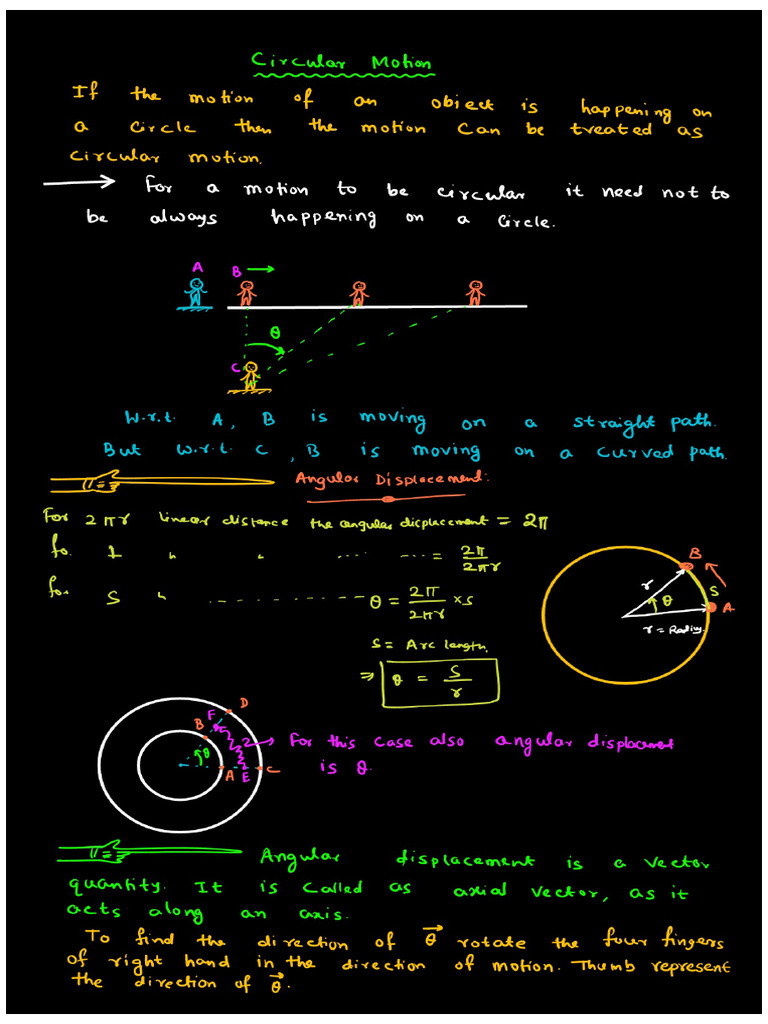 Circular Motion
If the motion of an object is happening on
a circle then the motion can be treated as
circular motion.
For a motion to be circular it need not to
be always happening on a circle.
A B
θ
C
W.r.t. A, B is moving on a straight path.
But w.r.t. C, B is moving on a curved path.
Angular Displacement:
For 2πr linear distance the angular displacement = 2π
for 1 " " ..... ... = 2π/2πr
for S " - - - - - - - - - - θ = 2π/2πr × s
B
r S
θ A
r = Radius.
S = Arc length.
⇒ θ = S/r
F D
B
2 → For this case also angular displacement
θ
A E C
is θ.
Angular displacement is a vector
quantity. It is called as axial vector, as it
acts along an axis.
To find the direction of θ⃗ rotate the four fingers
of right hand in the direction of motion. Thumb represent
the direction of θ⃗.